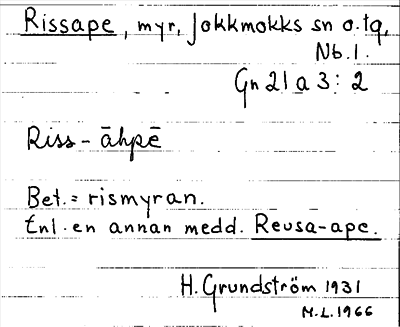 Rissape, myr, Jokkmokks sn o. tg,
Nb. l.
Gn 21 a 3: 2
Riss-āhpē
Bet. = rismyran.
Enl. en annan medd. Reusa-ape.
H. Grundström 1931
M.L. 1966